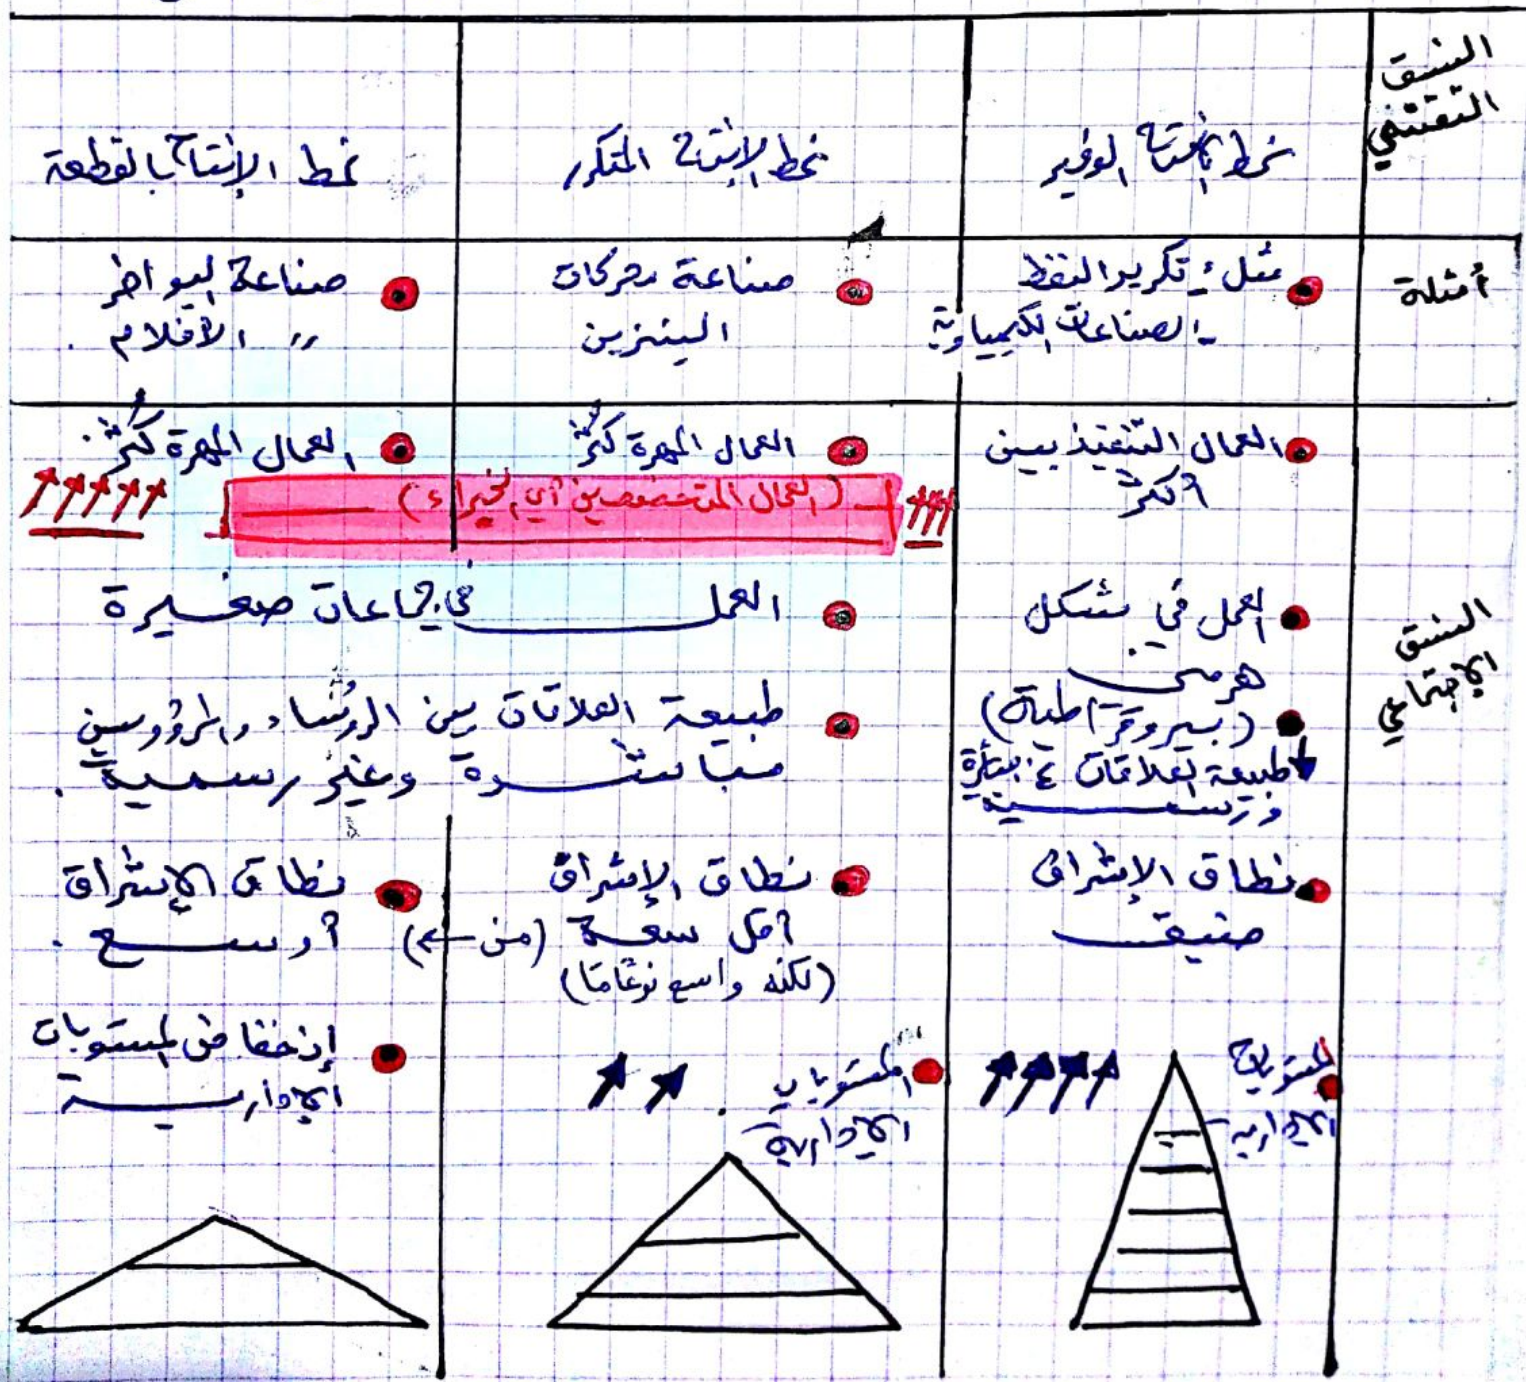 النسق
التقني
نمط الإنتاج الوفير
نمط الإنتاج المتكرر
نمط الإنتاج بالقطعة
أمثلة
مثل: تكرير النفط
- الصناعات الكيمياوية
صناعة محركات
البنزين
صناعة البواخر
" الأفلام .
النسق
الإجتماعي
العمال التنفيذيين
أكثر
العمال المهرة كُثُر
العمال المهرة كُثُر.
(العمال المتخصصين أي الخبراء)
العمل في شكل
هرمي
(بيروقراطية)
طبيعة العلاقات غ. مباشرة
ورسمية
العمل في جماعات صغيرة
طبيعة العلاقات بين الرؤساء والمرؤوسين
مباشرة وغير رسمية .
نطاق الإشراف
ضيق
نطاق الإشراف
أقل سعة (من ←)
(لكنه واسع نوعًا ما)
نطاق الإشراف
أوسع .
المستويات
الإدارية
المستويات
الإدارية
إنخفاض المستويات
الإدارية